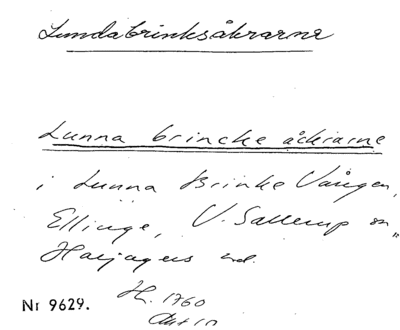 Lundabrinksåkrarne
Lunna brincke åckrarne
i Lunna Brinke Vången,
Ellinge, V. Sallerup sn,
Harjagers hd.
Nr 9629.
H. 1760
Akt 10